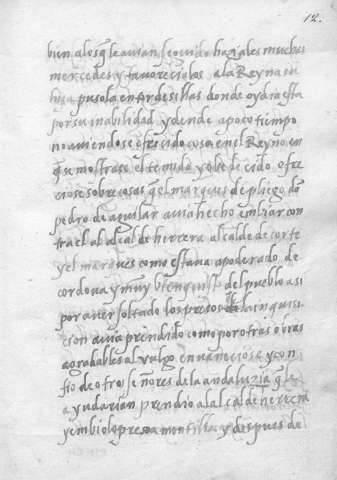 12.
bien alos q̃ le avian seruido haziales muchas
mercedes y favoreciolos a la Reyna su
hija puso la en tordesillas donde oy dia esta
por su inabilidad y dende a poco tiempo
no aviendose ofrecido cosa en el Reyno en
q̃ se mostrase el temido y obedecido ofre
ciose sobre cosas q̃ el marques de pliego dõ
pedro de aguilar avia hecho enbiar con
tra el al alcalde herrera alcalde de corte
y el marques como estava apoderado de
cordova y muy bien quisto del pueblo asi
por aver soltado los presos q̃ la inquisi
cion avia prendido como por otras obras
agradables al vulgo envaneciose y con
fio de otros señores de la andaluzia q̃ le
ayudarian prendio al alcalde herrera
y enbiolo preso a montilla y despues de